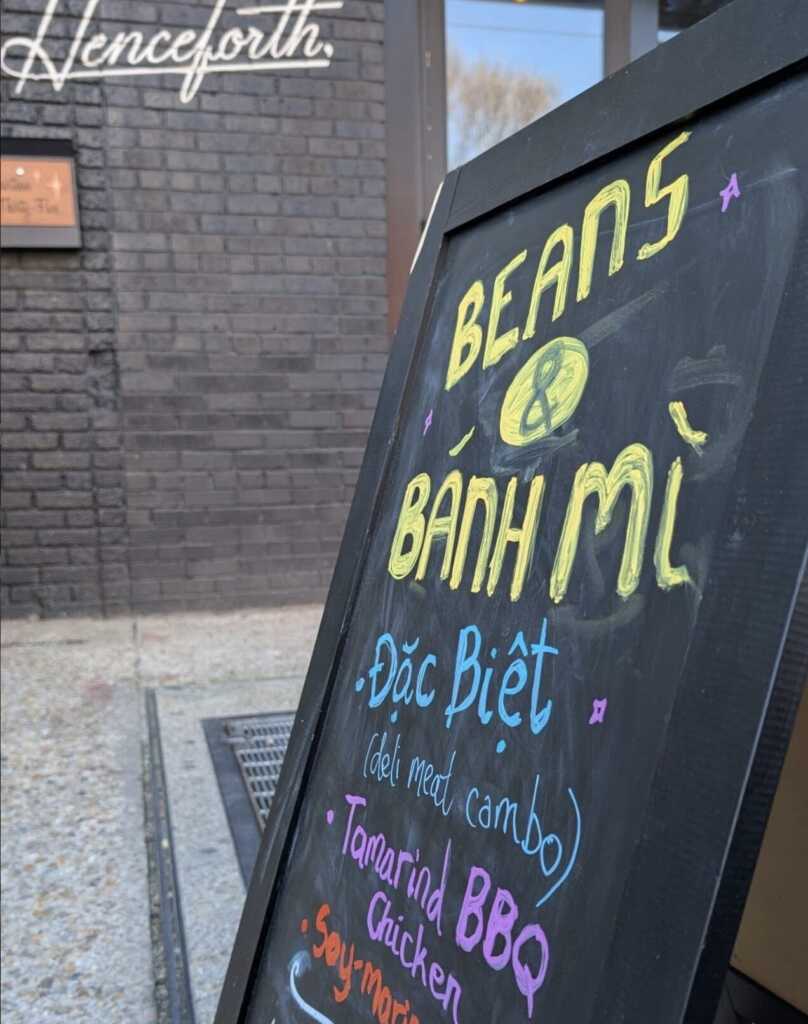 Henceforth.
BEANS
&
BÁNH MÌ
• Đặc Biệt
(deli meat combo)
• Tamarind BBQ
Chicken